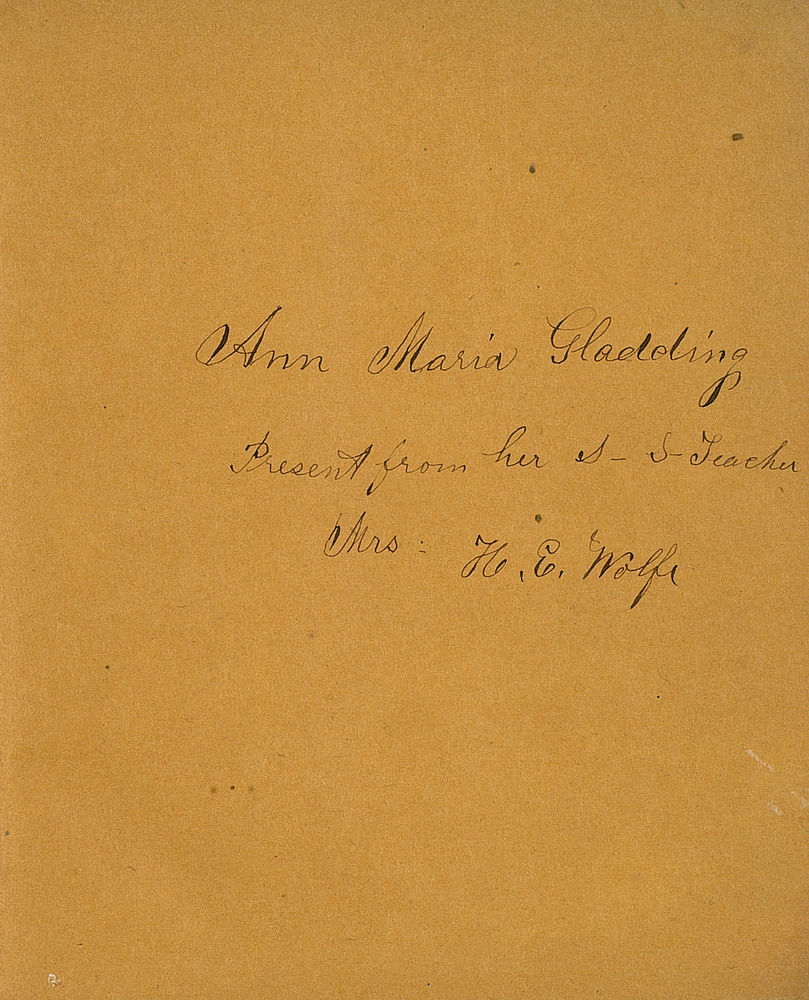 Ann Maria Gladding
Present from her S-S-Teacher
Mrs: H. E. Wolfe